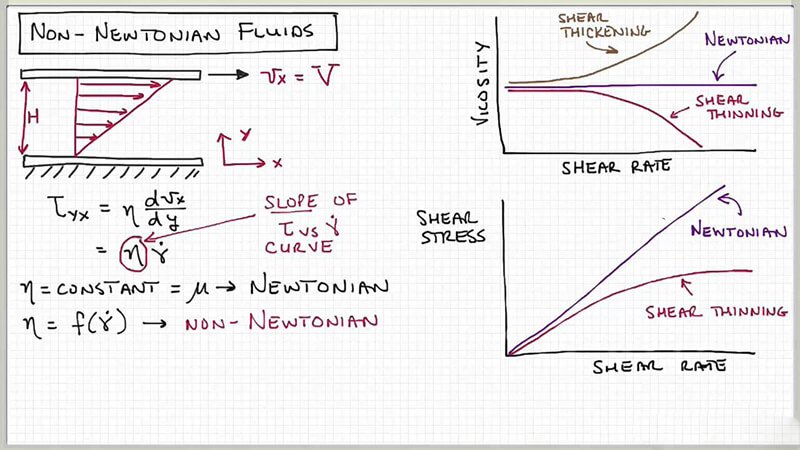 NON-NEWTONIAN FLUIDS
vx = V
H
y
x
τyx = η dvx/dy
= η γ̇
SLOPE OF
τ vs γ̇
CURVE
η = CONSTANT = μ → NEWTONIAN
η = f(γ̇) → NON-NEWTONIAN
SHEAR
THICKENING
NEWTONIAN
SHEAR
THINNING
VICOSITY
SHEAR RATE
SHEAR
STRESS
NEWTONIAN
SHEAR THINNING
SHEAR RATE